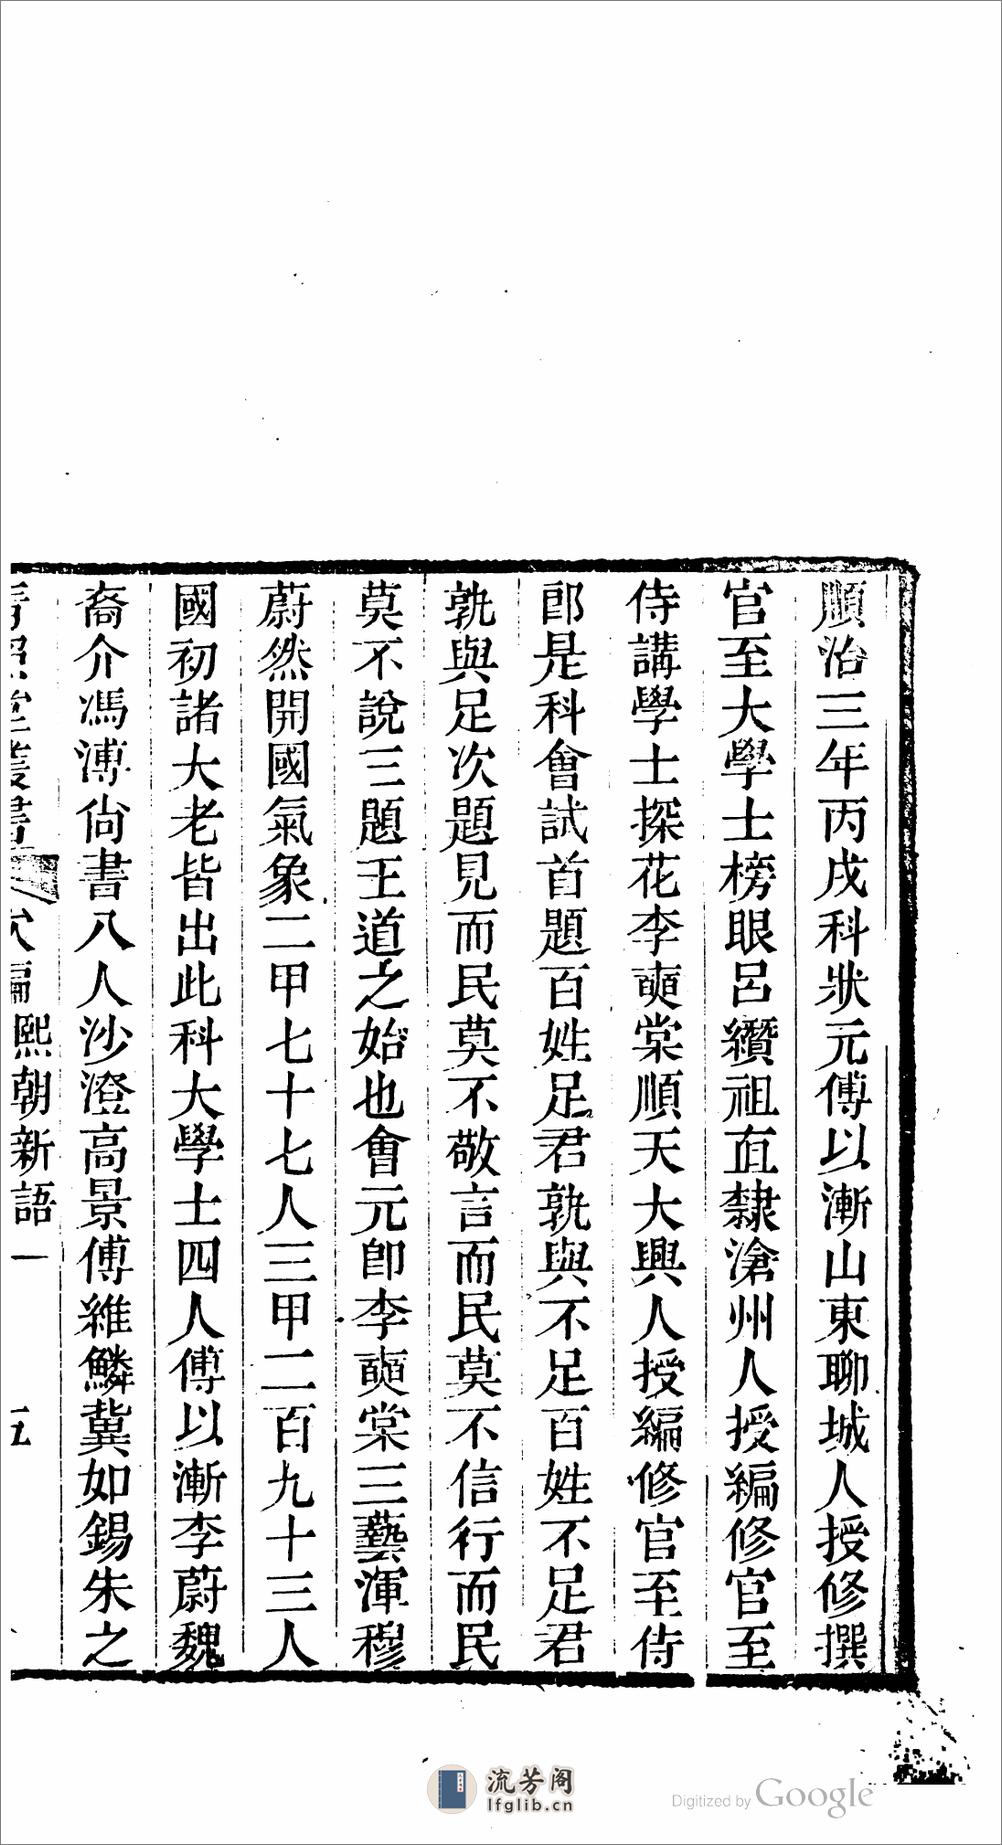 順治三年丙戌科狀元傅以漸山東聊城人授修撰
官至大學士榜眼呂纘祖直隸滄州人授編修官至
侍講學士探花李奭棠順天大興人授編修官至侍
郎是科會試首題百姓足君孰與不足百姓不足君
孰與足次題見而民莫不敬言而民莫不信行而民
莫不說三題王道之始也會元卽李奭棠三藝渾穆
蔚然開國氣象二甲七十七人三甲二百九十三人
國初諸大老皆出此科大學士四人傅以漸李蔚魏
裔介馮溥尙書八人沙澄高景傅維鱗冀如錫朱之
熙朝新語一
五
流芳阁
lfglib.cn
Digitized by Google